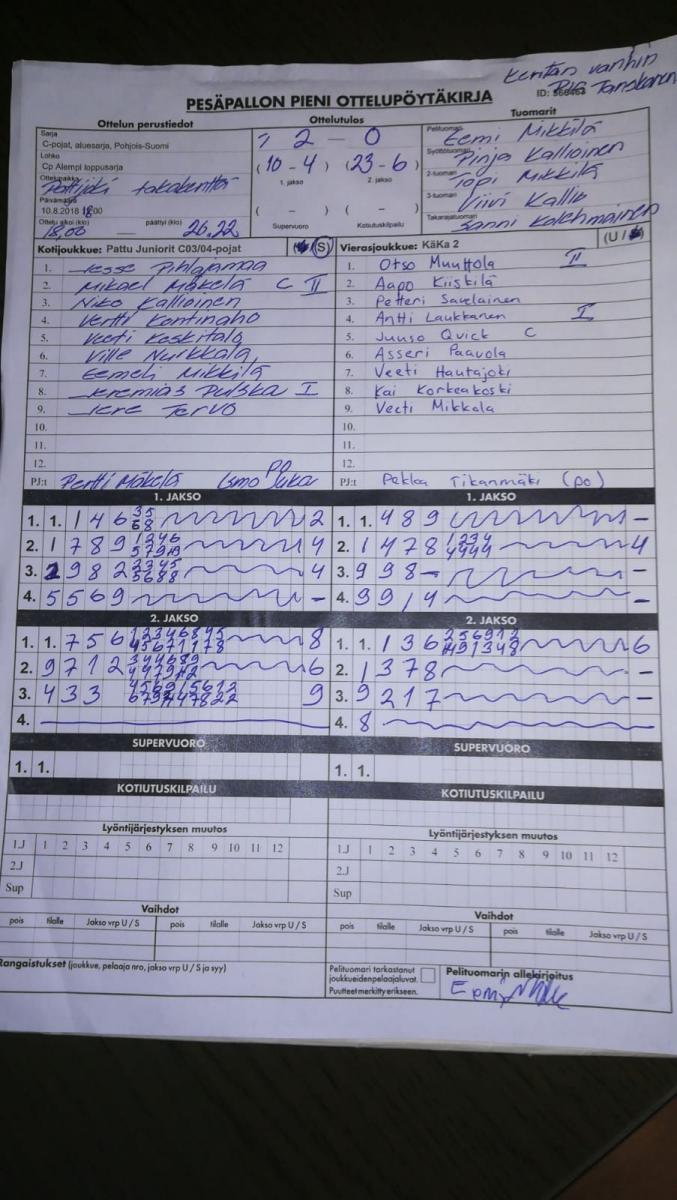 Kentän vanhin
Pia Tanskanen
PESÄPALLON PIENI OTTELUPÖYTÄKIRJA ID:
Ottelun perustiedot Ottelutulos Tuomarit
Sarja
C-pojat, aluesarja, Pohjois-Suomi
Lohko
Cp Alempi loppusarja
Ottelupaikka
Pattijoki takakenttä
Päivämäärä
10.8.2018 18:00
Ottelu alkoi (klo) päättyi (klo)
18.00
2 - 0
(10 - 4) (23 - 6)
1. jakso 2. jakso
( - ) ( - )
Supervuoro Kotiutuskilpailu
Pelituomari Eemi Mikkilä
Syöttötuomari Pinja Kallioinen
2-tuomari Topi Mikkilä
3-tuomari Viivi Kallio
Takarajatuomari Sanni Kolehmainen
Kotijoukkue: Pattu Juniorit C03/04-pojat (S)
1. Jesse Pihlajamaa
2. Mikael Mäkelä C II
3. Niko Kallioinen
4. Vertti Kontinaho
5. Veeti Keskitalo
6. Ville Nurkkala
7. Eemeli Mikkilä
8. Jeremias Pulska I
9. Jere Tervo
10.
11.
12.
PJ:t Pertti Mäkelä Ismo PO
Vierasjoukkue: KäKa 2 (U /
1. Otso Muuttola II
2. Aapo Kiiskilä
3. Petteri Savelainen
4. Antti Laukkanen I
5. Juuso Quick C
6. Asseri Paavola
7. Veeti Hautajoki
8. Kai Korkeakoski
9. Veeti Mikkola
10.
11.
12.
PJ:t Pekka Tikanmäki (po)
1. JAKSO 1. JAKSO
1. 1. 1 4 6 35 68 2
2. 1 7 8 9 4
3. 2 9 8 2 2345 5688 4
4. 5 5 6 9 -
1. 1. 4 8 9 -
2. 1 4 7 8 1234 4444 4
3. 9 9 8 - -
4. 9 9 1 4 -
2. JAKSO 2. JAKSO
1. 1. 7 5 6 8
2. 9 7 1 2 6
3. 4 3 3 9
4.
1. 1. 1 3 6 6
2. 1 3 7 8 -
3. 9 2 1 7 -
4. 8
SUPERVUORO SUPERVUORO
1. 1. 1. 1.
KOTIUTUSKILPAILU KOTIUTUSKILPAILU
Lyöntijärjestyksen muutos Lyöntijärjestyksen muutos
1.J 1 2 3 4 5 6 7 8 9 10 11 12 1.J 1 2 3 4 5 6 7 8 9 10 11 12
2.J 2.J
Sup Sup
Vaihdot Vaihdot
pois tilalle Jakso vrp U / S pois tilalle Jakso vrp U / S pois tilalle Jakso vrp U / S pois tilalle Jakso vrp U / S
Rangaistukset (joukkue, pelaaja nro, jakso vrp U / S ja syy)
Pelituomari tarkastanut
joukkueiden pelaajaluvat.
Puutteet merkitty erikseen.
Pelituomarin allekirjoitus